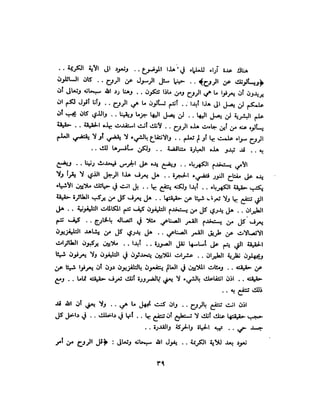 هناك عدة آراء للعلماء في هذا الموضوع .. ونعود الى الآية الكريمة ..
«ويسألونك عن الروح» .. حينما سئل الرسول عن الروح .. كان السائلون
يريدون أن يعرفوا ما هي الروح ومن ماذا تتكون .. وهنا رد الله سبحانه وتعالى أن
علمكم لن يصل الى هذا أبدا .. أنتم تسألون ما هي الروح .. وأنا أقول لكم ان
علم البشرية لن يصل اليها .. لن يصل اليها جزما ويقينا .. والذي كان يجب أن
يسألوه عنه من أين جاءت هذه الروح .. لأنك أنت استفدت بهذه الحقيقة .. حقيقة
الروح سواء علمت بها أو لم تعلم .. والانتفاع بالشيء لا يقضي أو لا يقتضي العلم
به .. قد تبدو هذه العبارة متناقضة .. ولكن سأفسرها لك ..
الأمي يستخدم الكهرباء .. ويضع يده على الجرس فيحدث رنينا .. ويضع
يده على مفتاح النور فتضيء الحجرة .. هل يعرف هذا الرجل الذي لا يقرأ ولا
يكتب حقيقة الكهرباء .. أبدا ولكنه ينتفع بها .. بل انت في حياتك ملايين الأشياء
التي تنتفع بها ولا تعرف شيئا عن حقيقتها .. هل يعرف كل من يركب الطائرة حقيقة
الطيران .. هل يدري كل من يستخدم التليفون كيف تتم المكالمات التليفونية .. هل
يعرف كل من يستخدم القمر الصناعي مثلا في اتصاله بالخارج .. كيف تتم
الاتصالات عن طريق القمر الصناعي .. هل يدري كل من يشاهد التليفزيون
الحقيقة التي يتم على أساسها نقل الصورة .. أبدا .. ملايين يركبون الطائرات
ويجهلون نظرية الطيران .. عشرات الملايين يتحدثون في التليفون ولا يعرفون شيئا
عن حقيقته .. ومئات الملايين في العالم ينتفعون بالتليفزيون دون أن يعرفوا شيئا عن
حقيقته .. اذن انتفاعك بالشيء لا يعني بالضرورة أنك تعرف حقيقته تماما .. ومع
ذلك تنتفع به ..
اذن انت تنتفع بالروح .. وان كنت تجهل ما هي .. ولا يعني أن الله قد
حجب حقيقتها عنك أنك لا تستطيع أن تنتفع بها .. أنها في داخلك .. في داخل كل
جسد حي .. تهبه الحياة والحركة والقدرة ..
نعود بعد للآية الكريمة .. يقول الله سبحانه وتعالى : «قل الروح من أمر
٣٩